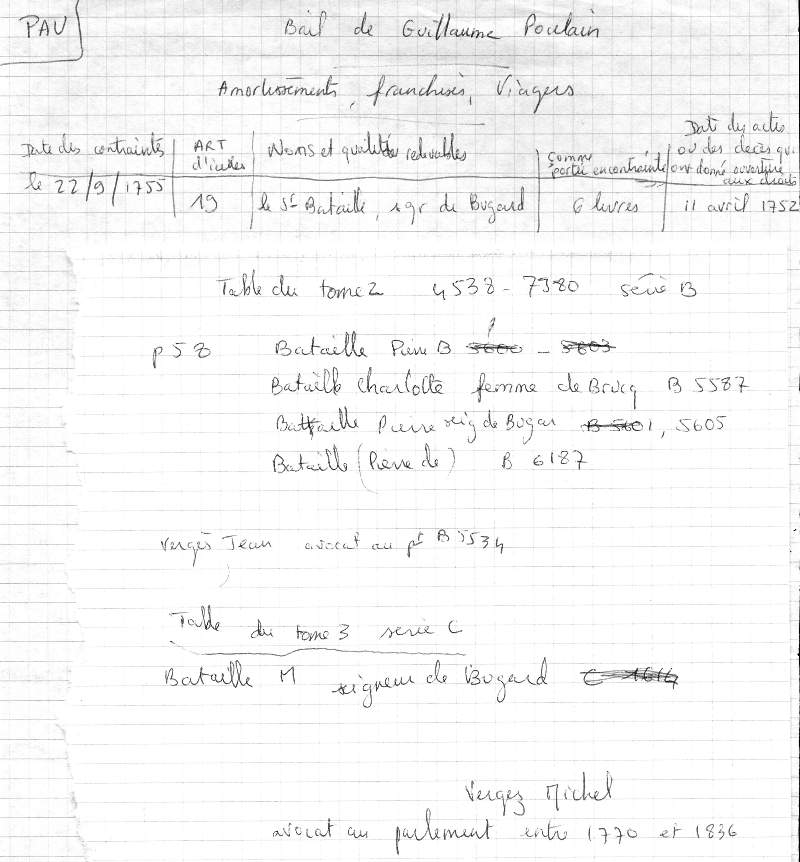 PAU
Bail de Guillaume Poulain
Amortissements, franchises, Viagers
Date des contraintes
ART d'icelles
Noms et qualités redevables
Somme portée en contrainte
Date des actes ou des décès qui ont donné ouverture aux droits
le 22/9/1755
19
le Sr Bataille, sgr de Bugard
6 livres
11 avril 1752
Table du tome 2 4538 - 7380 série B
p 58 Bataille Pierre B 5600 - 5603
Bataille Charlotte femme de Brucq B 5587
Battaille Pierre seig de Bugar B 5601, 5605
Bataille (Pierre de) B 6187
Vergès Jean avocat au pt B 5534
Table du tome 3 serie C
Bataille M seigneur de Bugard C 1614
Vergez Michel
avocat au parlement entre 1770 et 1836